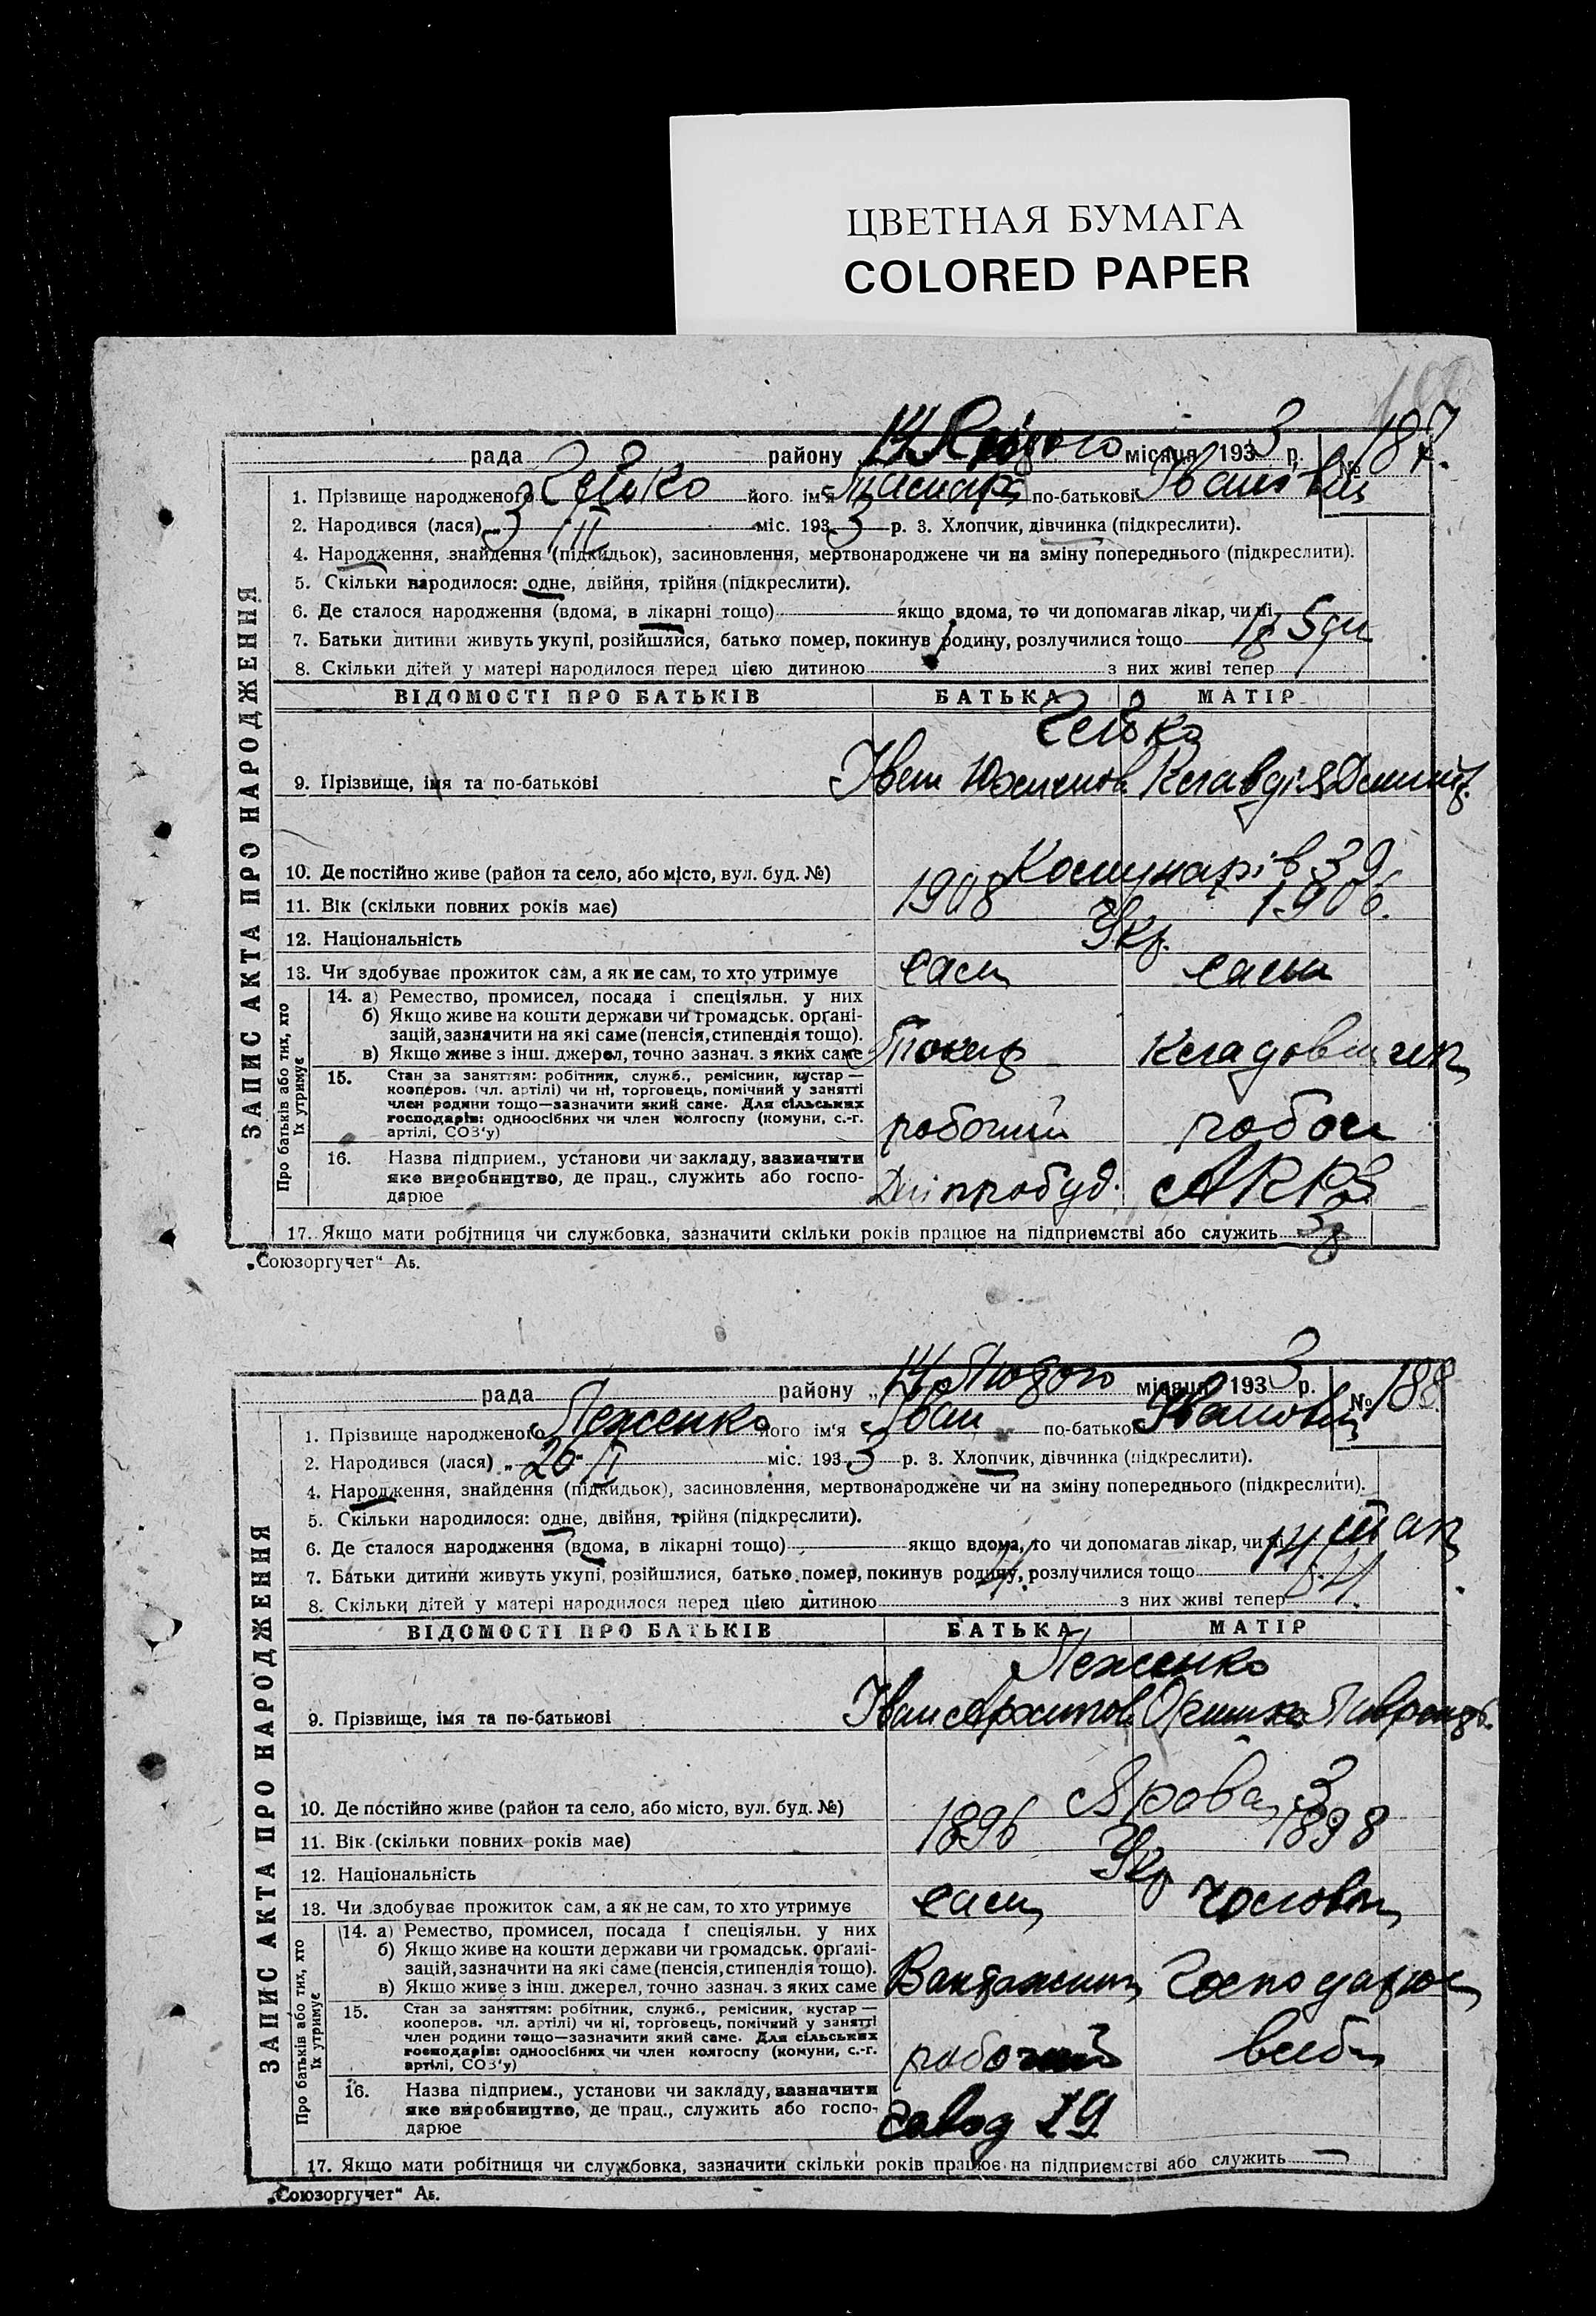 ЦВЕТНАЯ БУМАГА
COLORED PAPER
рада району „14 Лютого місяця 1933 р. № 187.
ЗАПИС АКТА ПРО НАРОДЖЕННЯ
1. Прізвище народженого його ім'я по-батькові Іванівна
2. Народився (лася) „3 II міс. 1933 р. 3. Хлопчик, дівчинка (підкреслити).
4. Народження, знайдення (підкидьок), засиновлення, мертвонароджене чи на зміну попереднього (підкреслити).
5. Скільки народилося: одне, двійня, трійня (підкреслити).
6. Де сталося народження (вдома, в лікарні тощо) якщо вдома, то чи допомагав лікар, чи ні
7. Батьки дитини живуть укупі, розійшлися, батько помер, покинув родину, розлучилися тощо
8. Скільки дітей у матері народилося перед цією дитиною з них живі тепер
ВІДОМОСТІ ПРО БАТЬКІВ БАТЬКА МАТІР
9. Прізвище, імя та по-батькові Іван Клавдія
10. Де постійно живе (район та село, або місто, вул. буд. №) Комунарів 39
11. Вік (скільки повних років має) 1908 1906.
12. Національність Укр.
13. Чи здобуває прожиток сам, а як не сам, то хто утримує сам сама
Про батьків або тих, хто їх утримує
14. а) Ремество, промисел, посада і спеціяльн. у них
б) Якщо живе на кошти держави чи громадськ. орґані-
зацій, зазначити на які саме (пенсія, стипендія тощо).
в) Якщо живе з інш. джерел, точно зазнач. з яких саме Токар
15. Стан за заняттям: робітник, служб., ремісник, кустар —
кооперов. (чл. артілі) чи ні, торговець, помічний у занятті
член родини тощо—зазначити який саме. Для сільських
господарів: одноосібних чи член колгоспу (комуни, с.-г.
артілі, СОЗ'у) робочий
16. Назва підприєм., установи чи закладу, зазначити
яке виробництво, де прац., служить або госпо-
дарює Дніпробуд.
17. Якщо мати робітниця чи службовка, зазначити скільки років працює на підприємстві або служить
„Союзоргучет“ Аб.
рада району „14 Лютого місяця 1933 р. № 188
ЗАПИС АКТА ПРО НАРОДЖЕННЯ
1. Прізвище народженого Леженко його ім'я Іван по-батькові Іванович
2. Народився (лася) „ міс. 1933 р. 3. Хлопчик, дівчинка (підкреслити).
4. Народження, знайдення (підкидьок), засиновлення, мертвонароджене чи на зміну попереднього (підкреслити).
5. Скільки народилося: одне, двійня, трійня (підкреслити).
6. Де сталося народження (вдома, в лікарні тощо) якщо вдома, то чи допомагав лікар, чи ні
7. Батьки дитини живуть укупі, розійшлися, батько помер, покинув родину, розлучилися тощо
8. Скільки дітей у матері народилося перед цією дитиною з них живі тепер
ВІДОМОСТІ ПРО БАТЬКІВ БАТЬКА МАТІР
Леженко
9. Прізвище, імя та по-батькові Іван Архипов
10. Де постійно живе (район та село, або місто, вул. буд. №) Ярова, 3
11. Вік (скільки повних років має) 1896 1898
12. Національність Укр
13. Чи здобуває прожиток сам, а як не сам, то хто утримує сам чоловік
Про батьків або тих, хто їх утримує
14. а) Ремество, промисел, посада і спеціяльн. у них
б) Якщо живе на кошти держави чи громадськ. орґані-
зацій, зазначити на які саме (пенсія, стипендія тощо).
в) Якщо живе з інш. джерел, точно зазнач. з яких саме Вантажник
15. Стан за заняттям: робітник, служб., ремісник, кустар —
кооперов. чл. артілі) чи ні, торговець, помічний у занятті
член родини тощо—зазначити який саме. Для сільських
господарів: одноосібних чи член колгоспу (комуни, с.-г.
артілі, СОЗ'у) робочий
16. Назва підприєм., установи чи закладу, зазначити
яке виробництво, де прац., служить або госпо-
дарює завод 29
17. Якщо мати робітниця чи службовка, зазначити скільки років працює на підприємстві або служить —
„Союзоргучет“ Аб.